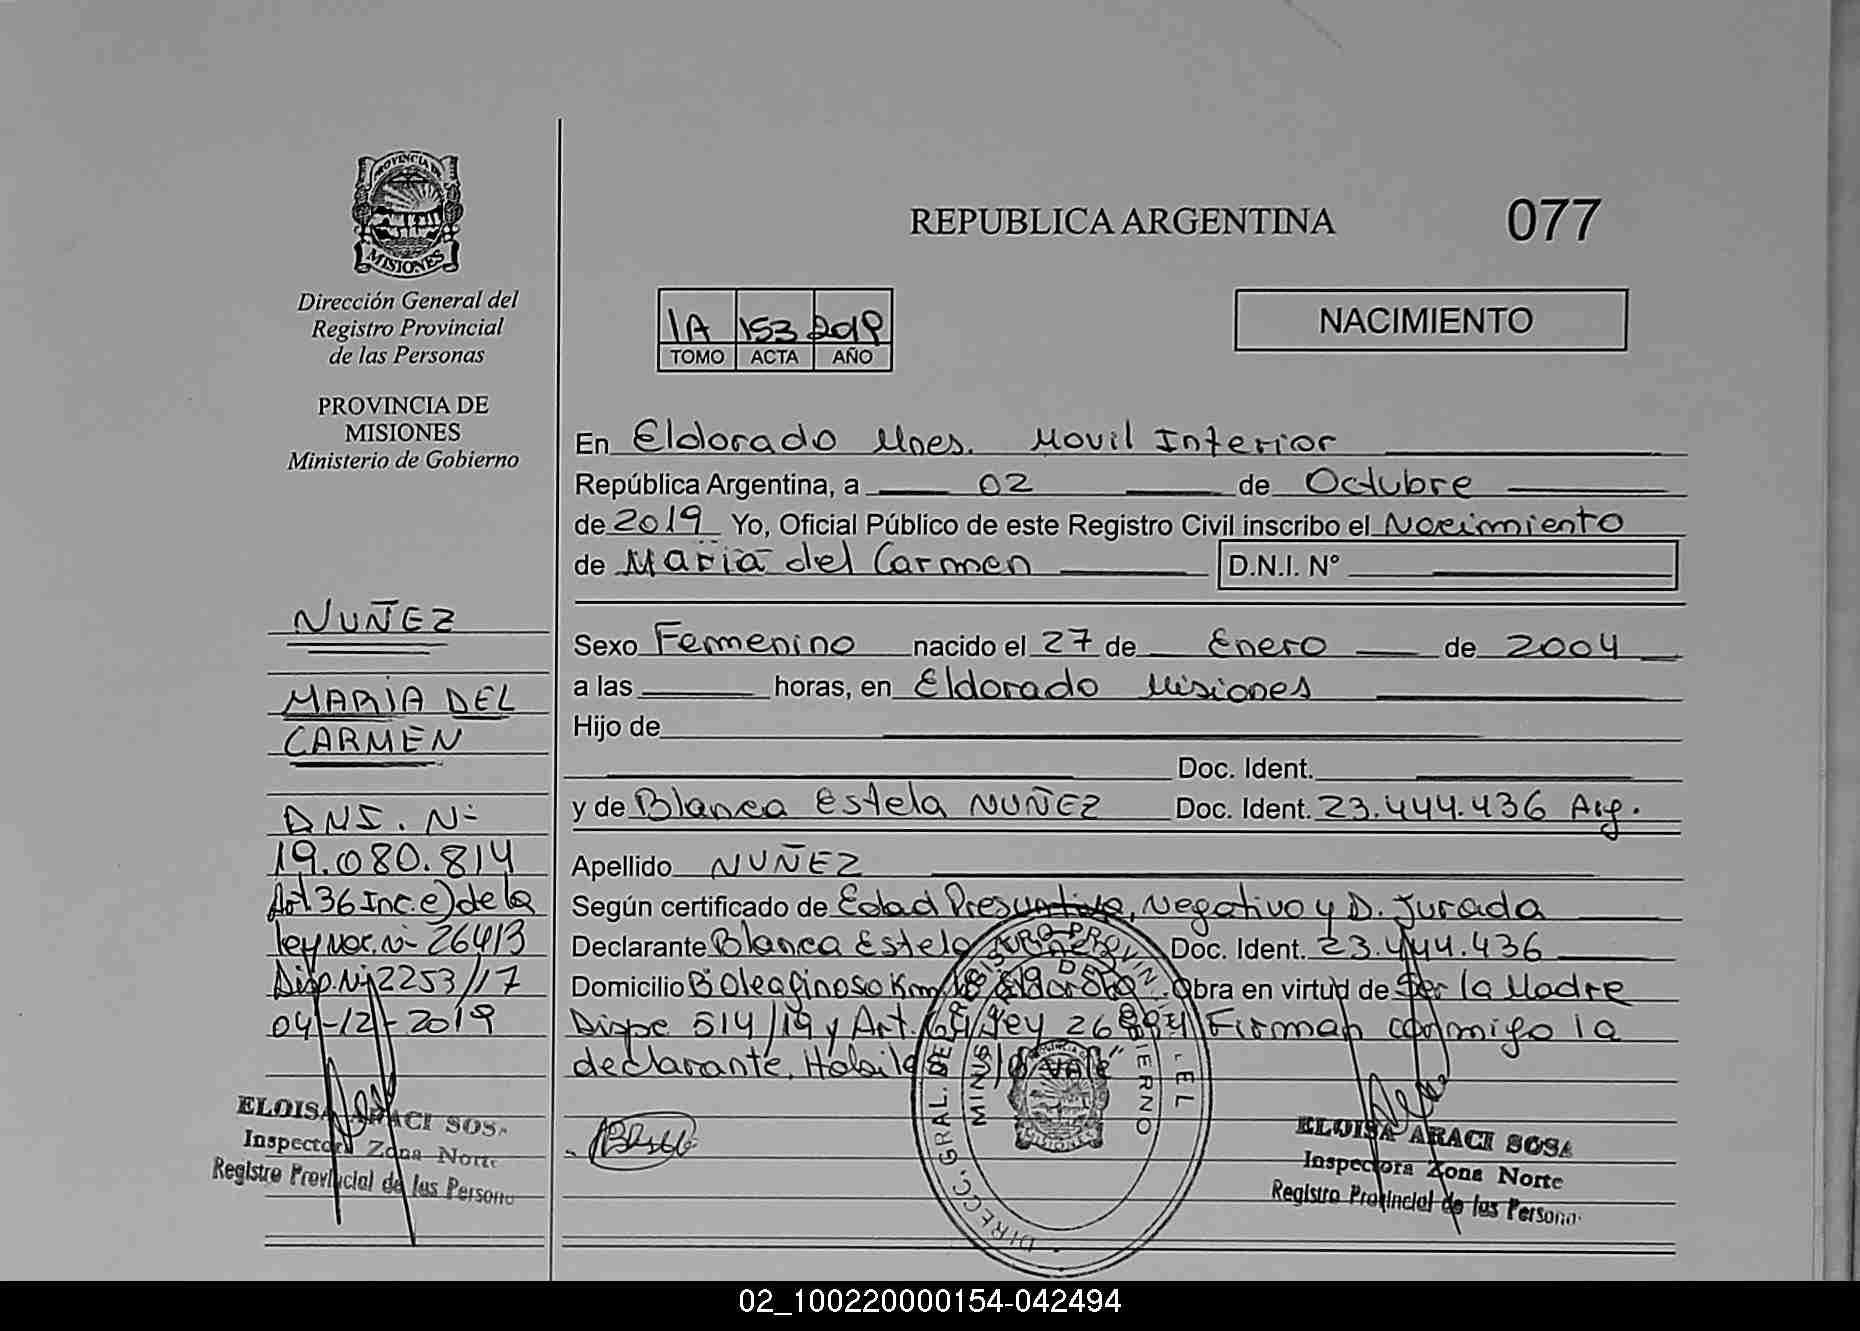 PROVINCIA DE
MISIONES
Dirección General del
Registro Provincial
de las Personas
PROVINCIA DE
MISIONES
Ministerio de Gobierno
NUÑEZ
MARIA DEL
CARMEN
DNI. Nº
19.080.814
Art 36 Inc. e) de la
ley Nac. Nº 26413
Disp. Nº 2253/17
04-12-2019
ELOISA ARACI SOSA
Inspectora Zona Norte
Registro Provincial de las Persona
REPUBLICA ARGENTINA
077
1A 153 2019
TOMO ACTA AÑO
NACIMIENTO
En Eldorado Mnes. Movil Interior
República Argentina, a 02 de Octubre
de 2019 Yo, Oficial Público de este Registro Civil inscribo el Nacimiento
de Maria del Carmen D.N.I. Nº
Sexo Femenino nacido el 27 de Enero de 2004
a las horas, en Eldorado Misiones
Hijo de
Doc. Ident.
y de Blanca Estela NUÑEZ Doc. Ident. 23.444.436 Arg.
Apellido NUÑEZ
Según certificado de Edad Presuntiva, Negativo y D. Jurada
Declarante Blanca Estela Doc. Ident. 23.444.436
Domicilio Bº Oleaginoso Km Obra en virtud de Ser la Madre
Dispc 514/19 y Art. ley Firman conmigo la
declarante. "Vale"
DIRECC. GRAL. DEL REGISTRO PROVINCIAL DE
MINISTERIO DE GOBIERNO
MISIONES
ELOISA ARACI SOSA
Inspectora Zona Norte
Registro Provincial de las Persona
02_100220000154-042494